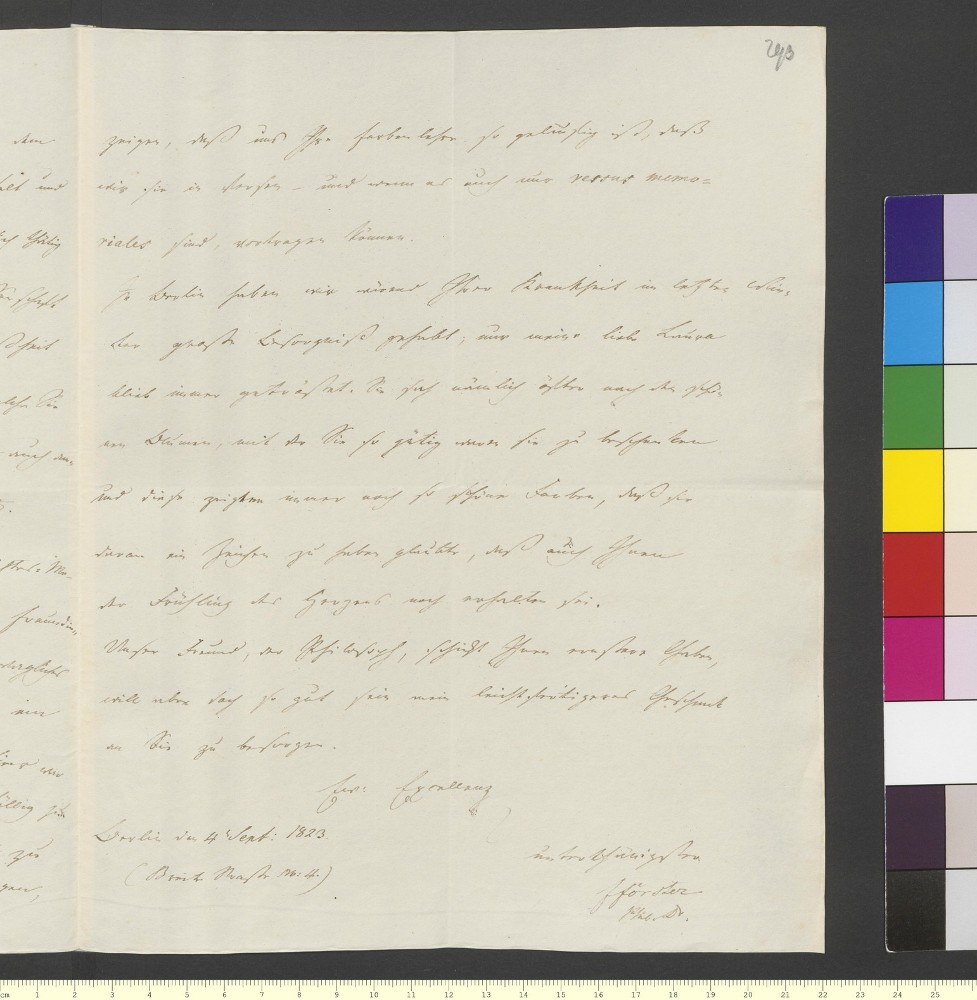 293
zeigen, daß uns Ihre Farbenlehre so geläufig ist, daß
wir sie in Versen – und wenn es auch nur versus memo=
riales sind, vortragen können.
In Berlin haben wir während Ihrer Krankheit im letzten Win,
ter große Besorgniß gehabt; nur meine liebe Laura
blieb immer getröstet. Sie sah nämlich öfter nach den schö,
nen Blumen, mit der Sie so gütig waren sie zu beschenken
und diese zeigten immer noch so schöne Farben, daß sie
daran ein Zeichen zu haben glaubte, daß auch Ihnen
der Frühling des Herzens noch erhalten sei.
Unser Freund, der Philosoph, schickt Ihnen ernstere Gaben,
will aber doch so gut sein mein leichtfertigeres Geschenk
an Sie zu besorgen.
Ew: Excellenz
Berlin den 4 Sept: 1823.
(Breite Straße No: 4.)
unterthänigster
FFörster
Dr.
dem
und
gütig
Sie
auch
ein
zu